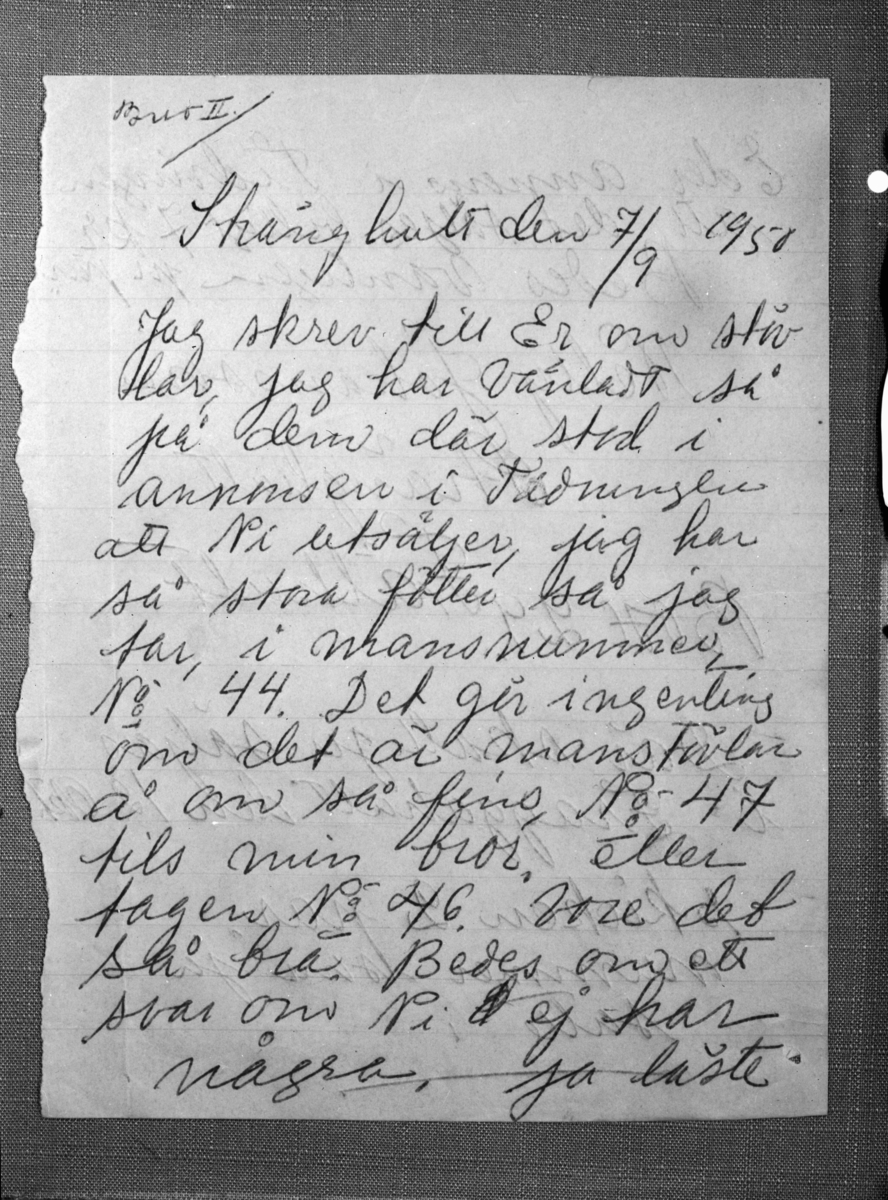 Brev II.
Skånghult den 7/9 1950
Jag skrev till Er om stöv
lar, jag har väntadt så
på dem där stod i
annonsen i Tidningen
att Ni utsäljer, jag har
så stora fötter så jag
tar, i mansnummer,
No 44. Det gör ingenting
om det är manstövlar
å om så fins, No 47
tils min bror, eller
tagen No 46. vore det
så bra. Bedes om ett
svar om Ni ej har
några. ja läste